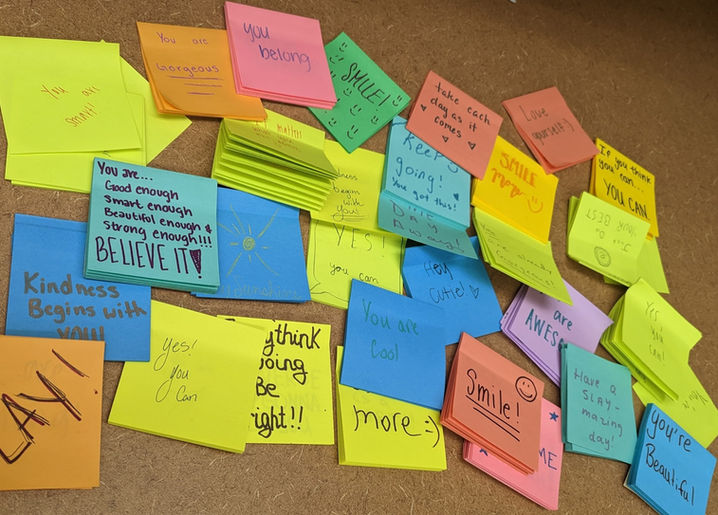 You are
smart!
You are
Gorgeous
you
belong
SMILE!
take each
day as it
comes
Love
yourself:)
If you think
you can...
YOU CAN.
SMILE
more
Keep
going!
You got this!
You are...
Good enough
smart enough
Beautiful enough &
strong enough!!!
BELIEVE IT!
begin
with
you!
YES!
you can
Hey
Cutie!
are
AWES
Yes!
you
Can!
Kindness
Begins with
YOU!
Yes!
You
Can
think
oing
Be
right!!
You are
Cool
more:)
Smile!
ME
Have a
SLAY-
mazing
day!
you're
Beautiful
LAY!